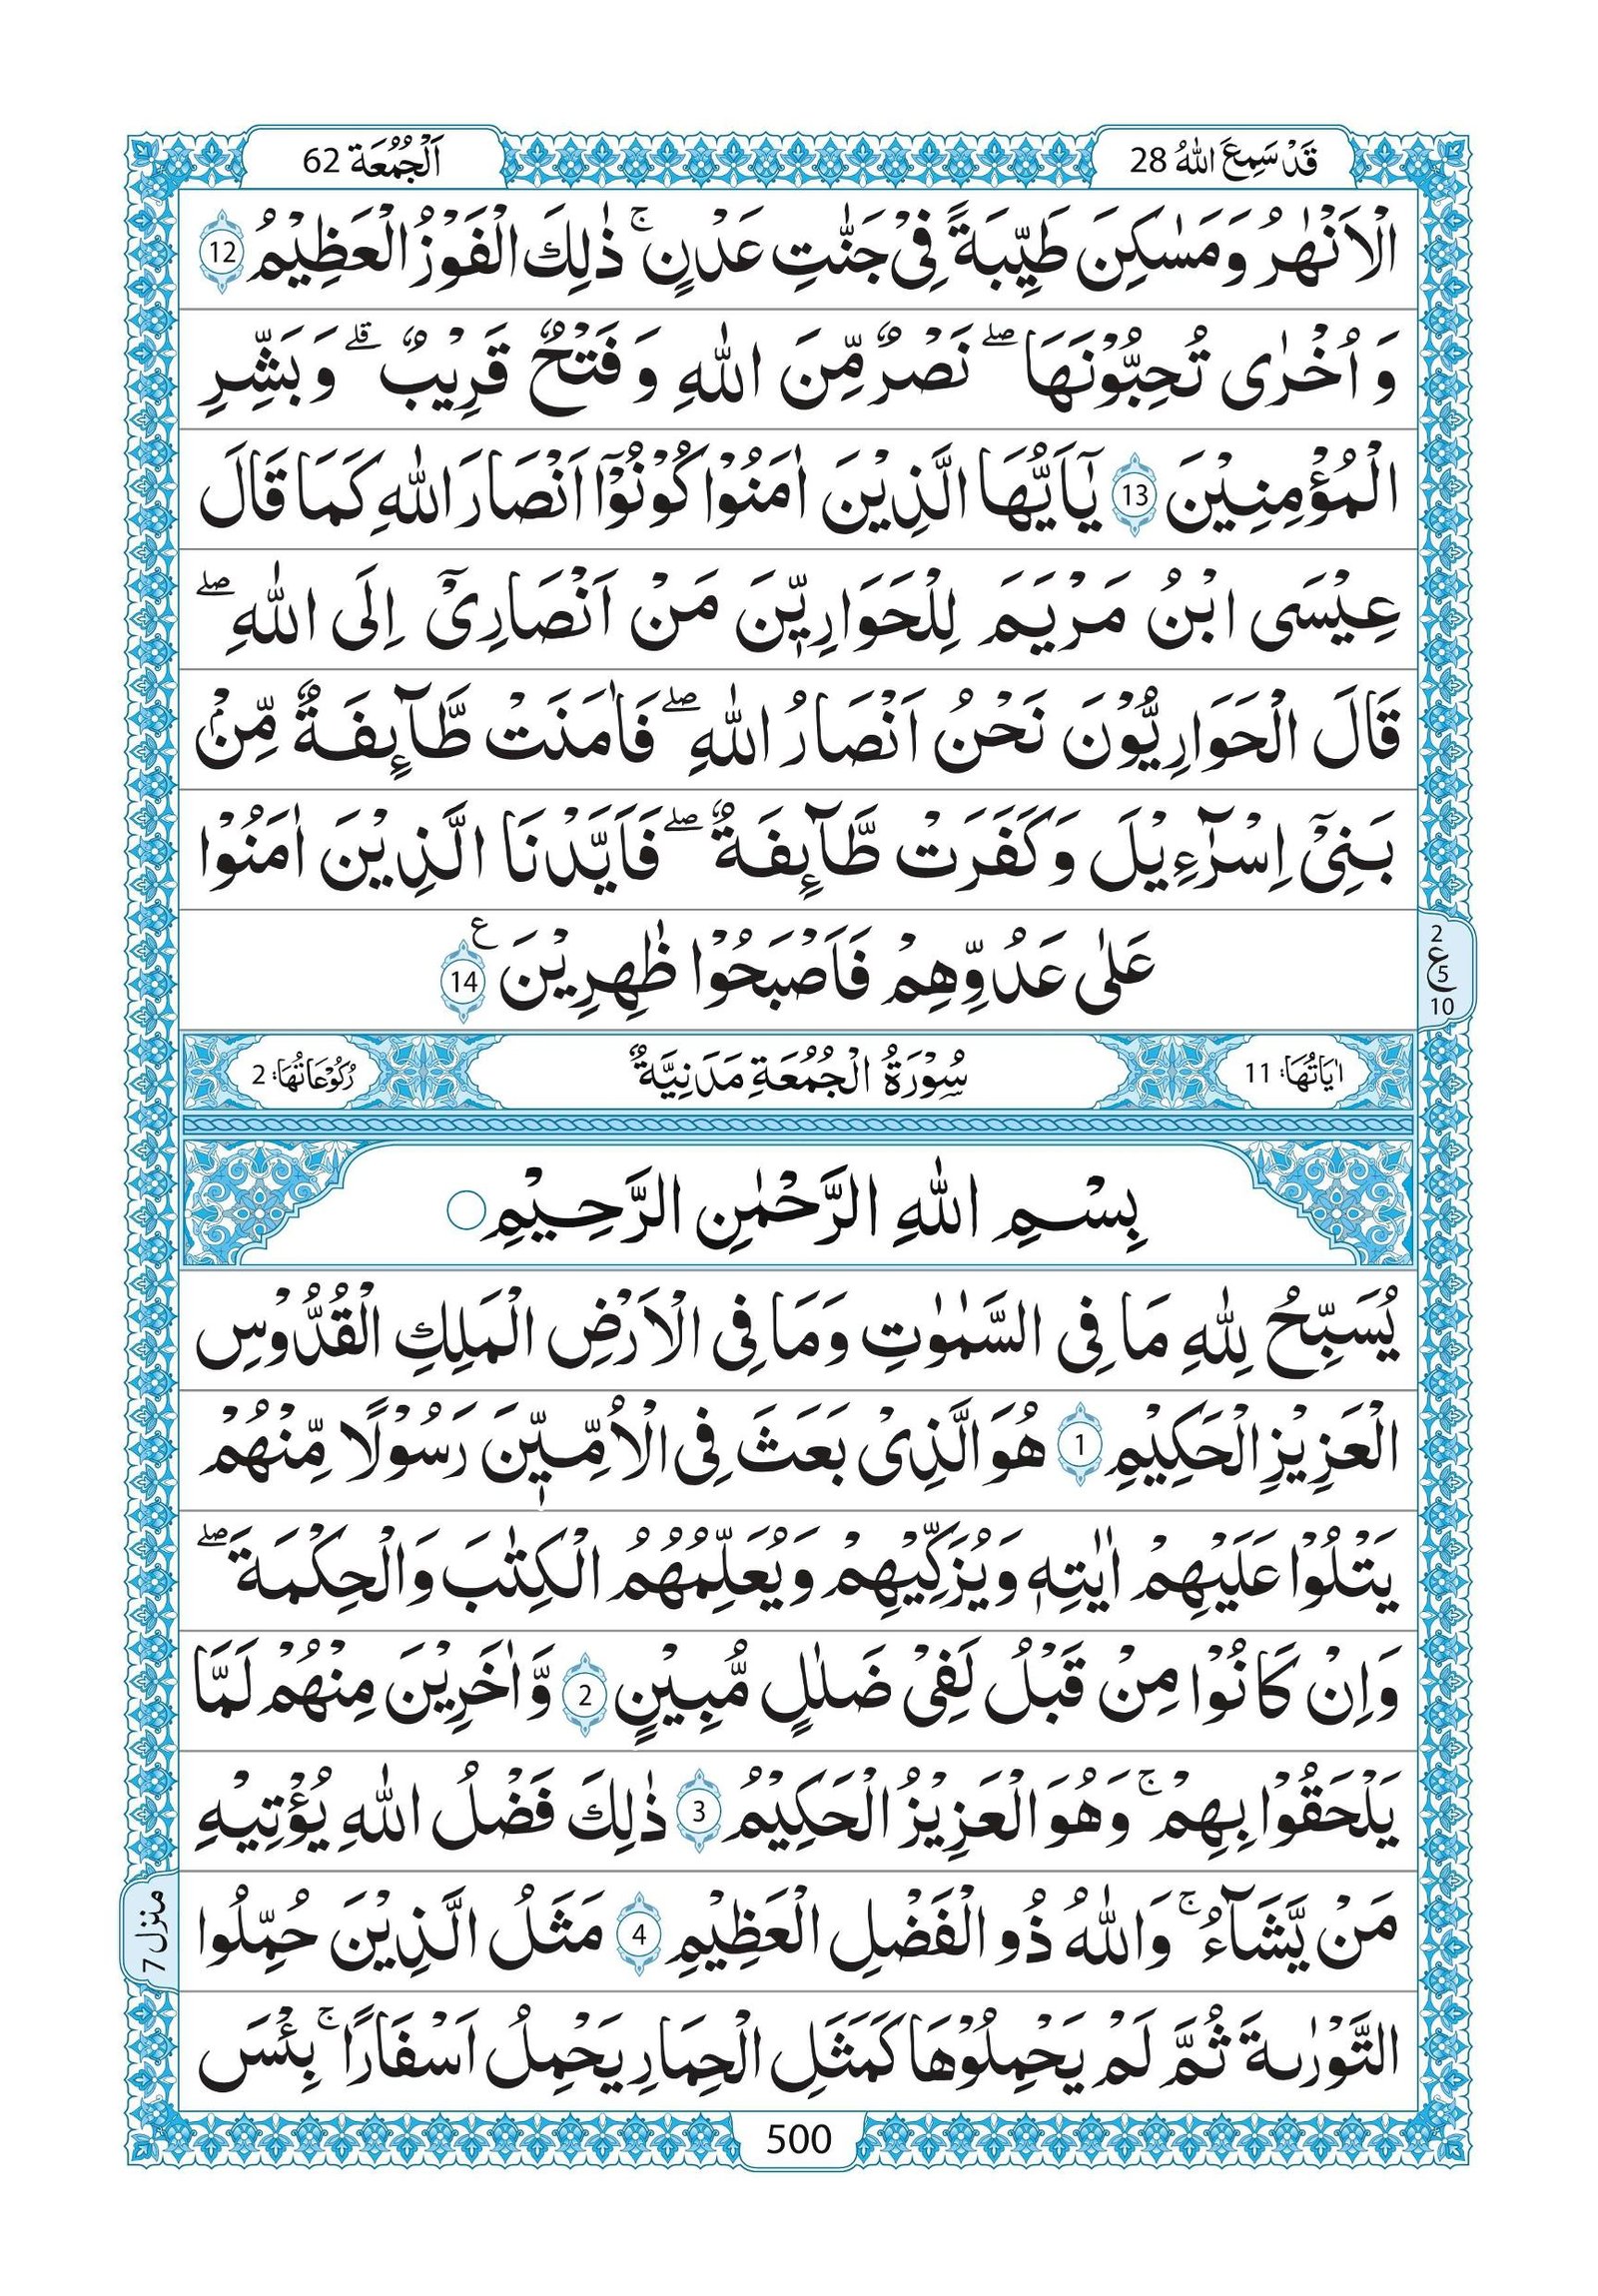 قَدْ سَمِعَ اللّٰهُ 28
اَلْجُمُعَة 62
الْاَنْهٰرُ وَمَسٰكِنَ طَيِّبَةً فِیْ جَنّٰتِ عَدْنٍ ۚ ذٰلِكَ الْفَوْزُ الْعَظِيْمُ 12
وَ اُخْرٰی تُحِبُّوْنَهَا ۖ نَصْرٌ مِّنَ اللّٰهِ وَ فَتْحٌ قَرِيْبٌ ۗ وَ بَشِّرِ
الْمُؤْمِنِيْنَ 13 يٰۤاَيُّهَا الَّذِيْنَ اٰمَنُوْا كُوْنُوْۤا اَنْصَارَ اللّٰهِ كَمَا قَالَ
عِيْسَی ابْنُ مَرْيَمَ لِلْحَوَارِيّٖنَ مَنْ اَنْصَارِیْۤ اِلَی اللّٰهِ ۖ
قَالَ الْحَوَارِيُّوْنَ نَحْنُ اَنْصَارُ اللّٰهِ ۖ فَاٰمَنَتْ طَّآىِٕفَةٌ مِّنْۢ
بَنِیْۤ اِسْرَآءِيْلَ وَكَفَرَتْ طَّآىِٕفَةٌ ۖ فَاَيَّدْنَا الَّذِيْنَ اٰمَنُوْا
عَلٰی عَدُوِّهِمْ فَاَصْبَحُوْا ظٰهِرِيْنَ ع 14
2
ع 5
10
اٰيَاتُهَا: 11
سُوْرَةُ الْجُمُعَةِ مَدَنِيَّةٌ
رُكُوْعَاتُهَا: 2
بِسْمِ اللّٰهِ الرَّحْمٰنِ الرَّحِيْمِ
يُسَبِّحُ لِلّٰهِ مَا فِی السَّمٰوٰتِ وَمَا فِی الْاَرْضِ الْمَلِكِ الْقُدُّوْسِ
الْعَزِيْزِ الْحَكِيْمِ 1 هُوَ الَّذِیْ بَعَثَ فِی الْاُمِّيّٖنَ رَسُوْلًا مِّنْهُمْ
يَتْلُوْا عَلَيْهِمْ اٰيٰتِهٖ وَيُزَكِّيْهِمْ وَيُعَلِّمُهُمُ الْكِتٰبَ وَالْحِكْمَةَ ۖ
وَاِنْ كَانُوْا مِنْ قَبْلُ لَفِیْ ضَلٰلٍ مُّبِيْنٍ 2 وَّاٰخَرِيْنَ مِنْهُمْ لَمَّا
يَلْحَقُوْا بِهِمْ ۚ وَهُوَ الْعَزِيْزُ الْحَكِيْمُ 3 ذٰلِكَ فَضْلُ اللّٰهِ يُؤْتِيْهِ
مَنْ يَّشَآءُ ۚ وَاللّٰهُ ذُو الْفَضْلِ الْعَظِيْمِ 4 مَثَلُ الَّذِيْنَ حُمِّلُوا
منزل 7
التَّوْرٰىةَ ثُمَّ لَمْ يَحْمِلُوْهَا كَمَثَلِ الْحِمَارِ يَحْمِلُ اَسْفَارًا ۚ بِئْسَ
500